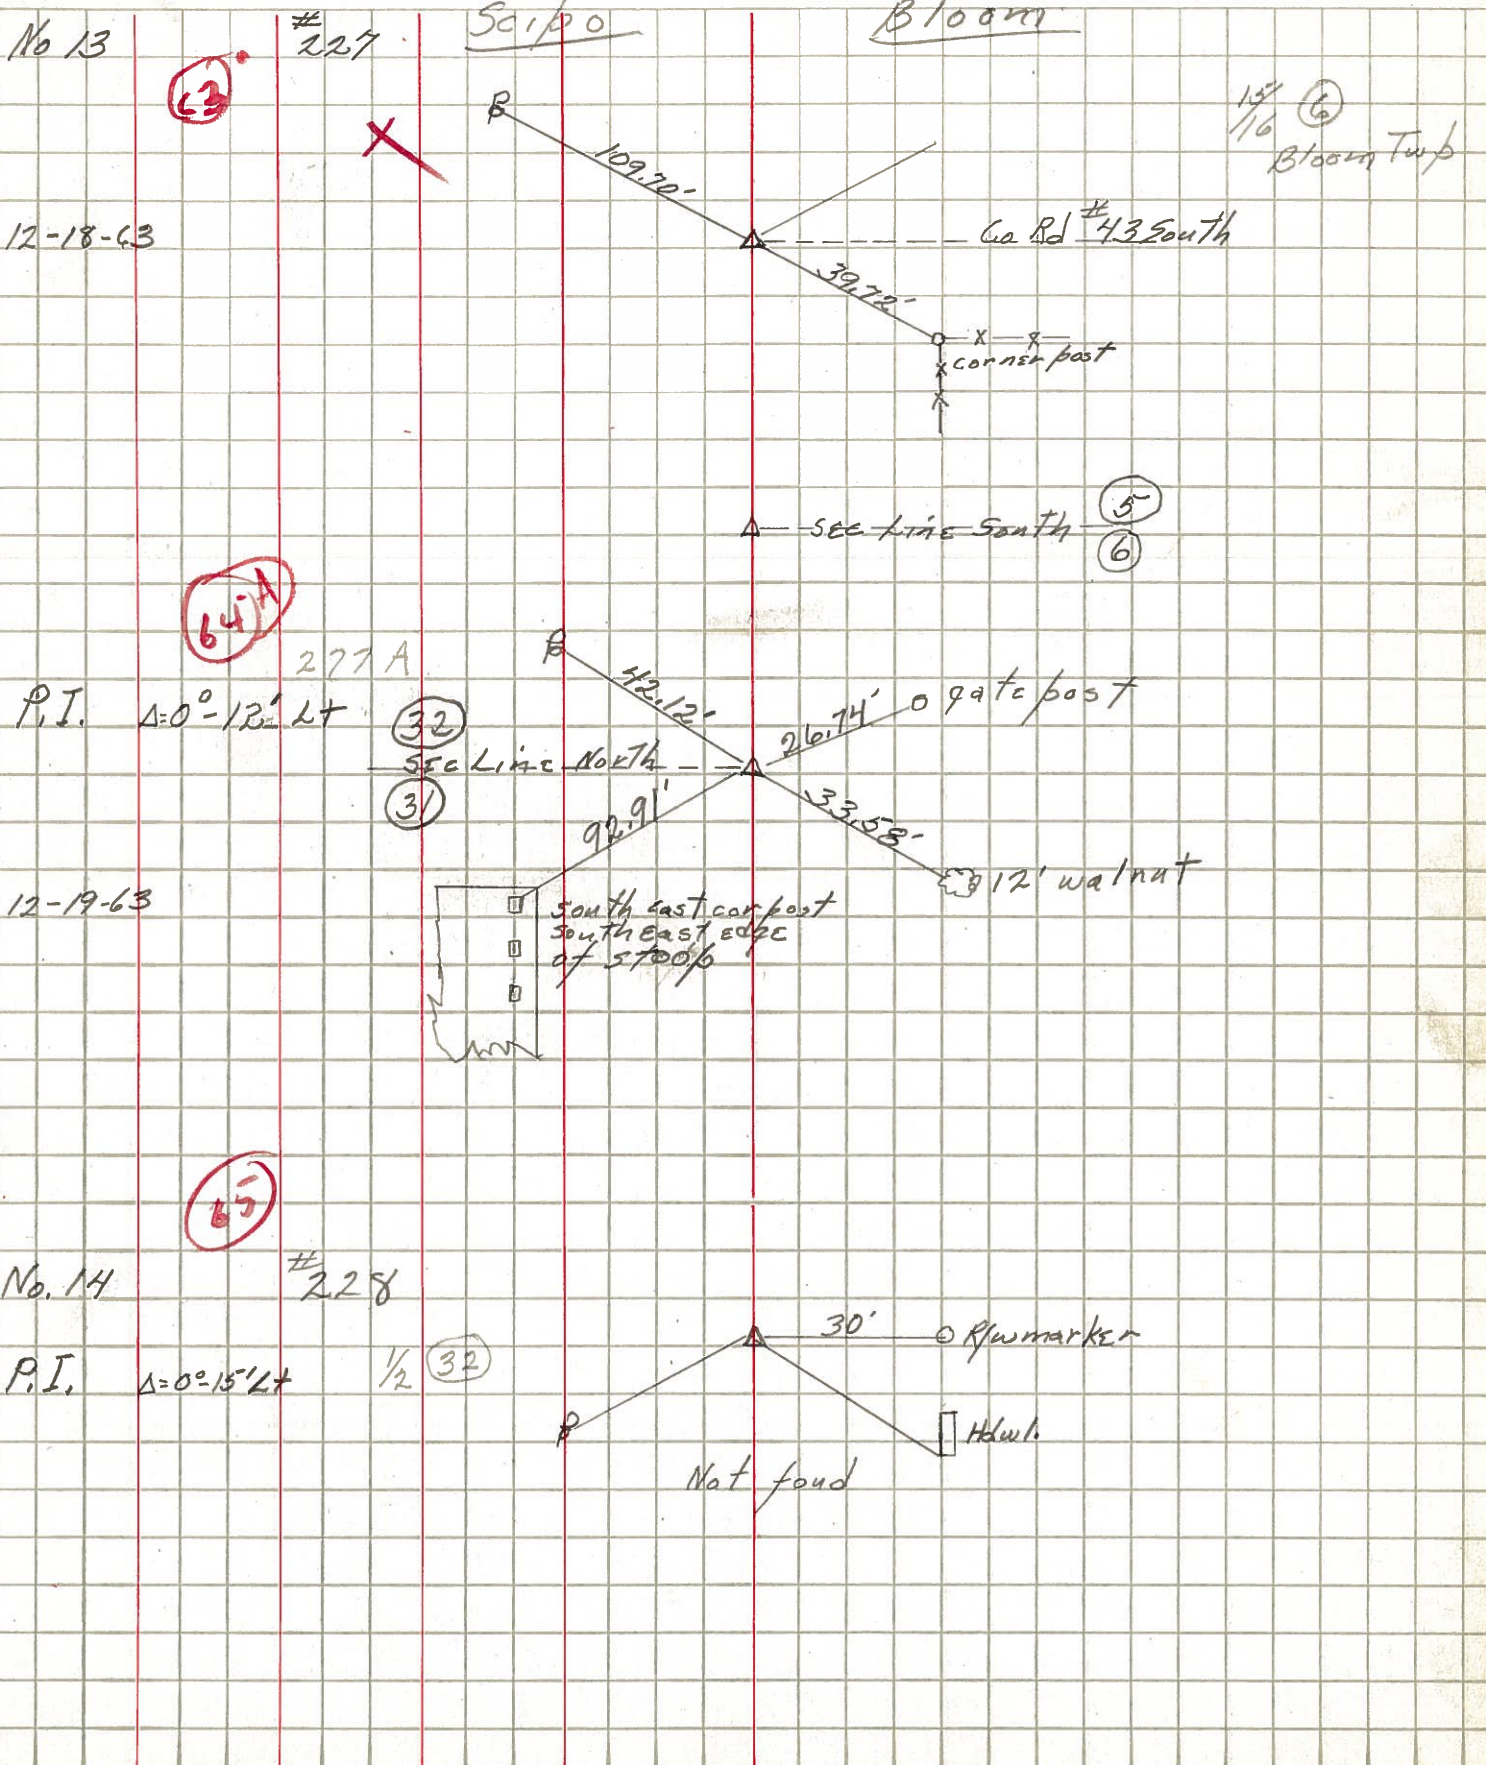 Scipo Bloom
No 13 #227
63
15/16 6
Bloom Twp
109.70'
12-18-63
Co Rd #43 South
39.72'
corner post
Sec Line South 5
6
64 A
277 A
P.I. Δ=0°-12' Lt
32
42.12'
26.74' gate post
Sec Line North
31
92.91'
33.58'
12' walnut
12-19-63
South east cor post
South East edge
of stoop
65
No. 14 #228
30' R/w marker
P.I. Δ=0°-15' Lt 1/2 32
Hdwl.
Not foud